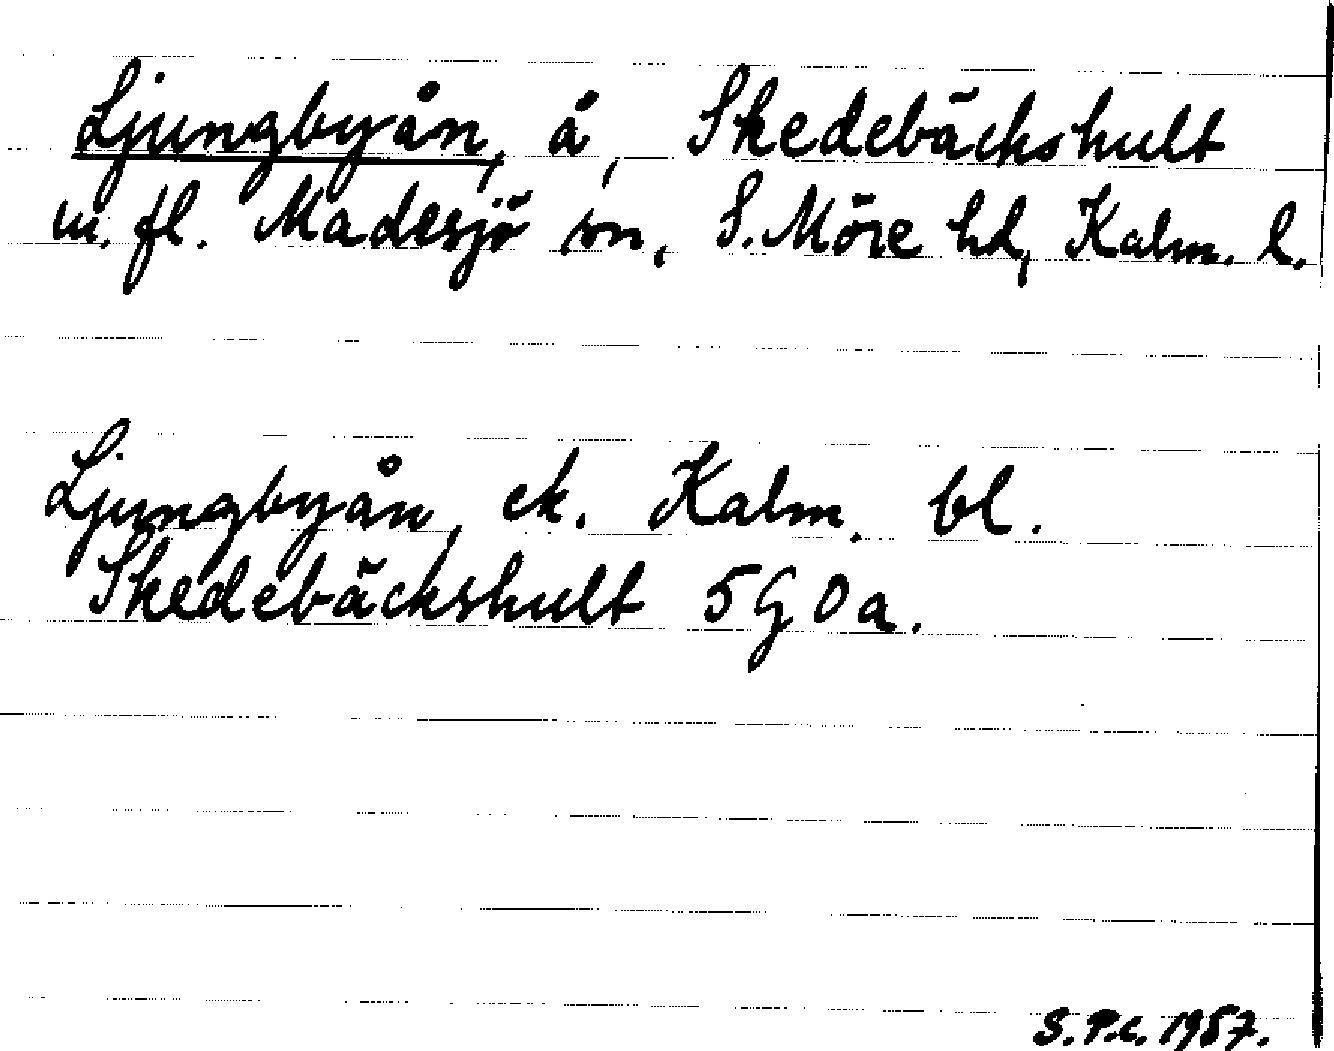 Ljungbyån, å, Skedebäckshult
m. fl. Madesjö sn, S. Möre hd, Kalm. l.
Ljungbyån, ek. Kalm. bl.
Skedebäckshult 5G0a.
S.P.C. 1957.